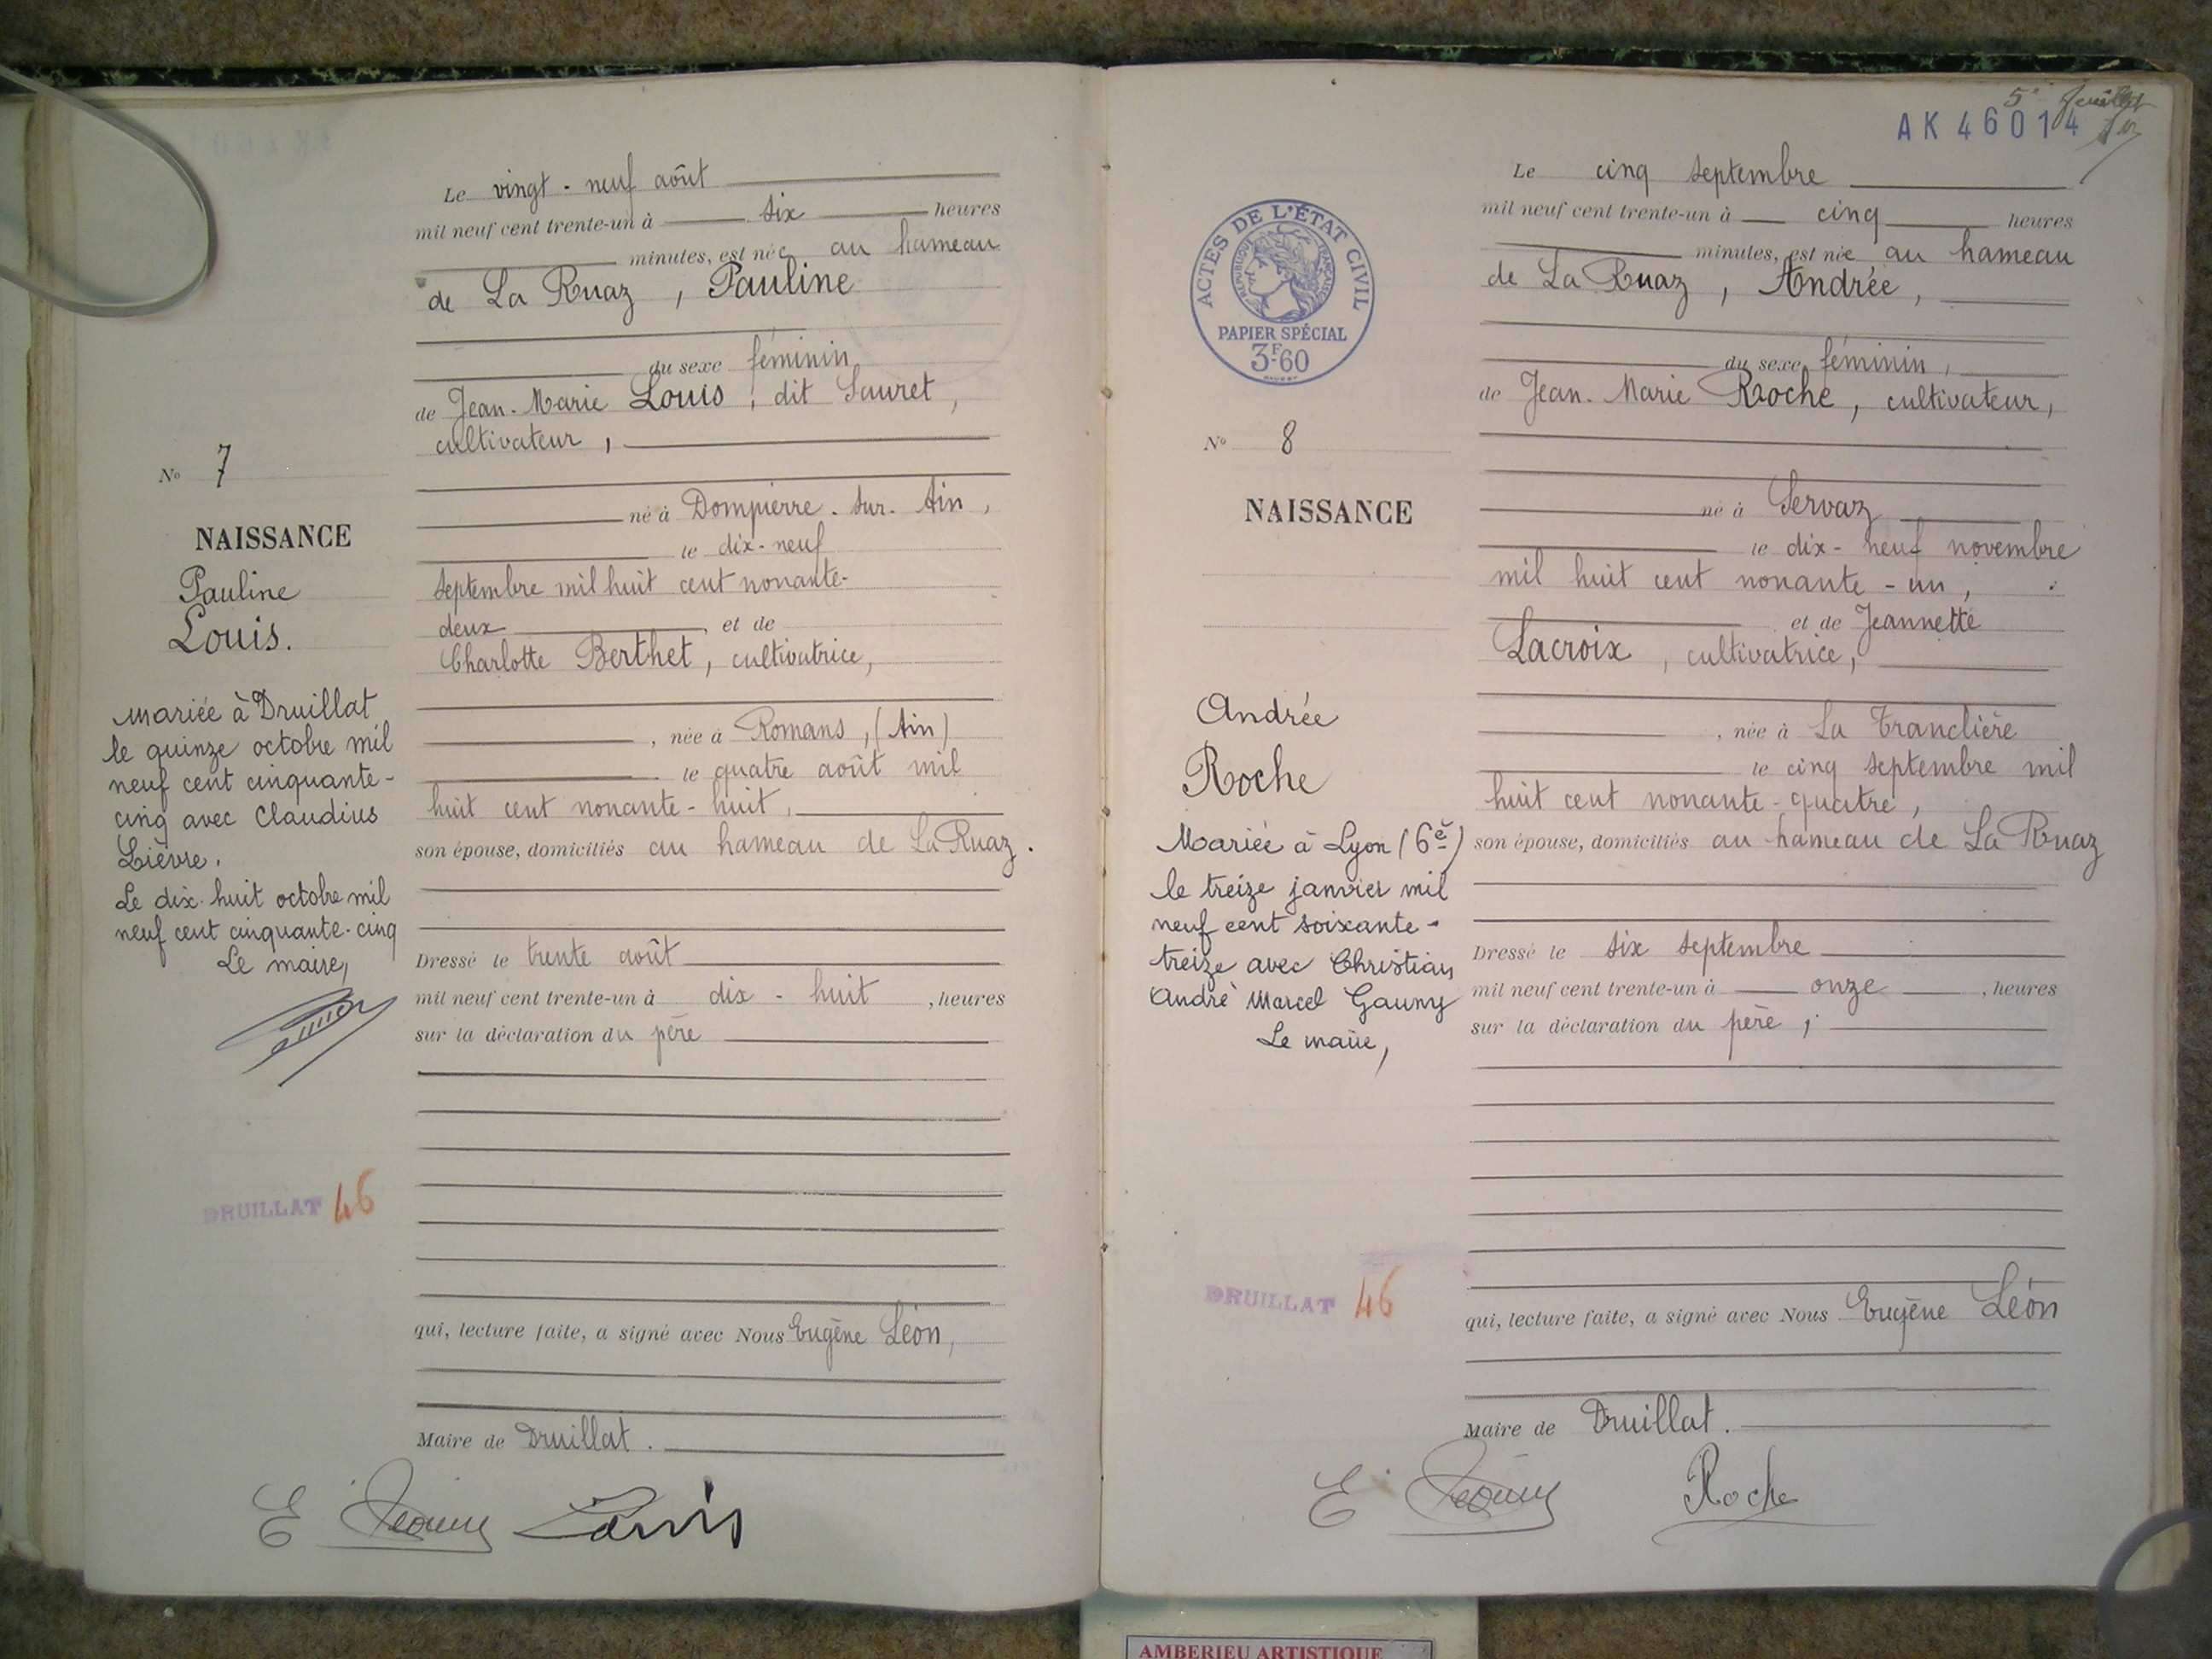 Le vingt-neuf août
mil neuf cent trente-un à six heures
minutes, est née au hameau
de La Ruaz, Pauline
du sexe féminin
de Jean-Marie Louis, dit Sauret,
cultivateur,
né à Dompierre-sur-Ain,
le dix-neuf
septembre mil huit cent nonante-
deux et de
Charlotte Berthet, cultivatrice,
, née à Romans, (Ain)
le quatre août mil
huit cent nonante-huit,
son épouse, domiciliés au hameau de La Ruaz.
Dressé le trente août
mil neuf cent trente-un à dix-huit, heures
sur la déclaration du père
qui, lecture faite, a signé avec Nous Eugène Léon,
Maire de Druillat.
Louis
No 7
NAISSANCE
Pauline
Louis.
Mariée à Druillat
le quinze octobre mil
neuf cent cinquante-
cinq avec Claudius
Lièvre.
Le dix-huit octobre mil
neuf cent cinquante-cinq
Le maire,
DRUILLAT 46
5e feuillet
AK 46014
ACTES DE L'ÉTAT CIVIL
RÉPUBLIQUE FRANÇAISE
PAPIER SPÉCIAL
3F60
Le cinq septembre
mil neuf cent trente-un à cinq heures
minutes, est née au hameau
de La Ruaz, Andrée,
du sexe féminin,
de Jean-Marie Roche, cultivateur,
né à Servaz
le dix-neuf novembre
mil huit cent nonante-un,
et de Jeannette
Lacroix, cultivatrice,
, née à La Tranclière
le cinq septembre mil
huit cent nonante-quatre,
son épouse, domiciliés au hameau de La Ruaz
Dressé le six septembre
mil neuf cent trente-un à onze, heures
sur la déclaration du père,
qui, lecture faite, a signé avec Nous Eugène Léon
Maire de Druillat.
Roche
No 8
NAISSANCE
Andrée
Roche
Mariée à Lyon (6e)
le treize janvier mil
neuf cent soixante-
treize avec Christian
André Marcel Gauny
Le maire,
DRUILLAT 46
AMBERIEU ARTISTIQUE